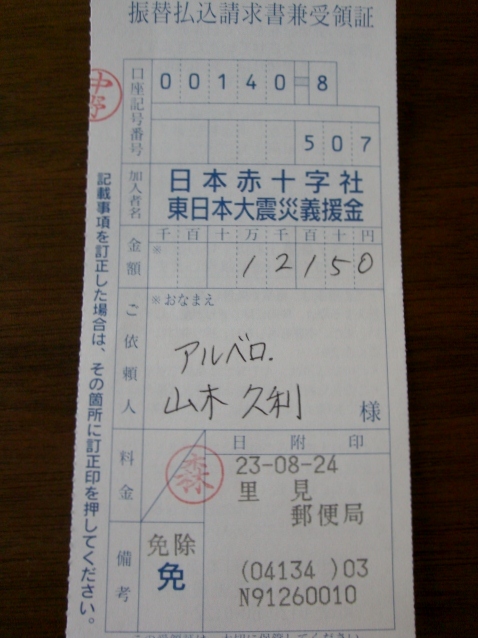 振替払込請求書兼受領証
口座記号番号
00140=8
507
加入者名
日本赤十字社
東日本大震災義援金
金額
千百十万千百十円
※
12150
ご依頼人
※おなまえ
アルベロ.
山木久利
様
料金
日附印
森
23-08-24
里見
郵便局
備考
免除
免
(04134 )03
N91260010
記載事項を訂正した場合は、その箇所に訂正印を押してください。
中野